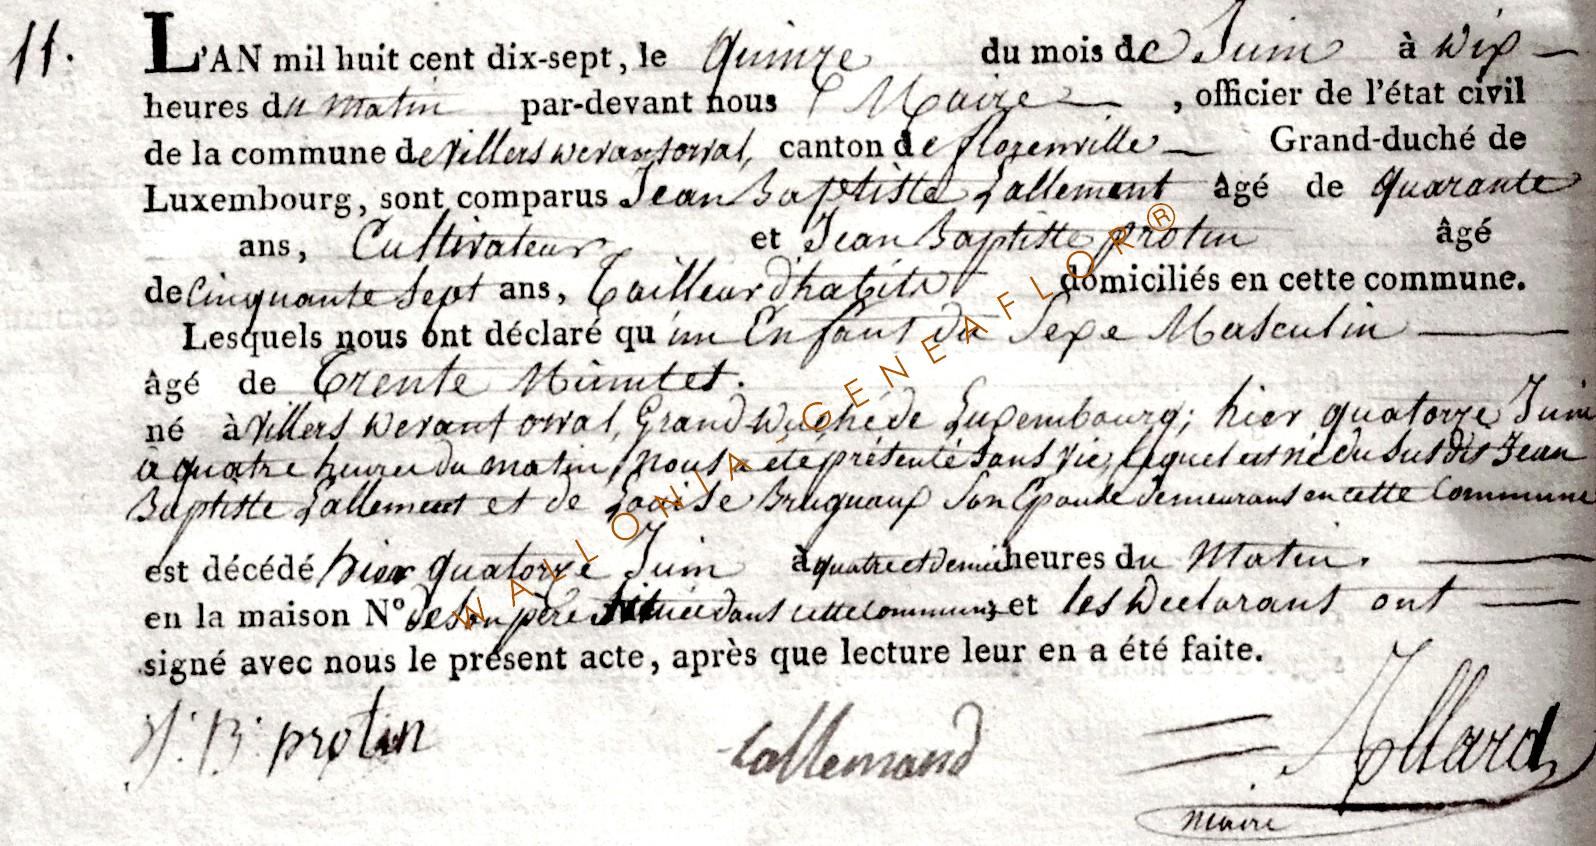 11.
L'AN mil huit cent dix-sept, le quinze du mois de Juin à dix
heures du matin par-devant nous Maire, officier de l'état civil
de la commune de Villers devant orval, canton de florenville Grand-duché de
Luxembourg, sont comparus Jean Baptiste Lallement âgé de quarante
ans, Cultivateur et Jean Baptiste protin âgé
de Cinquante Sept ans, Tailleur d'habits domiciliés en cette commune.
Lesquels nous ont déclaré qu'un Enfant du Sexe Masculin
âgé de Trente Minutes.
né à Villers devant orval, Grand Duché de Luxembourg; hier quatorze Juin
à quatre heures du matin, Nous a été présenté sans vie, lequel est né du susdit Jean
Baptiste Lallement et de Louise Bruquaux son Epouse demeurans en cette Commune
est décédé hier quatorze Juin à quatre et demie heures du Matin.
en la maison N° de son père située dans cette commune; et les Declarans ont
signé avec nous le présent acte, après que lecture leur en a été faite.
J. B. protin Lallemand Allard
maire
WALLONIA-GENEAFLOR®